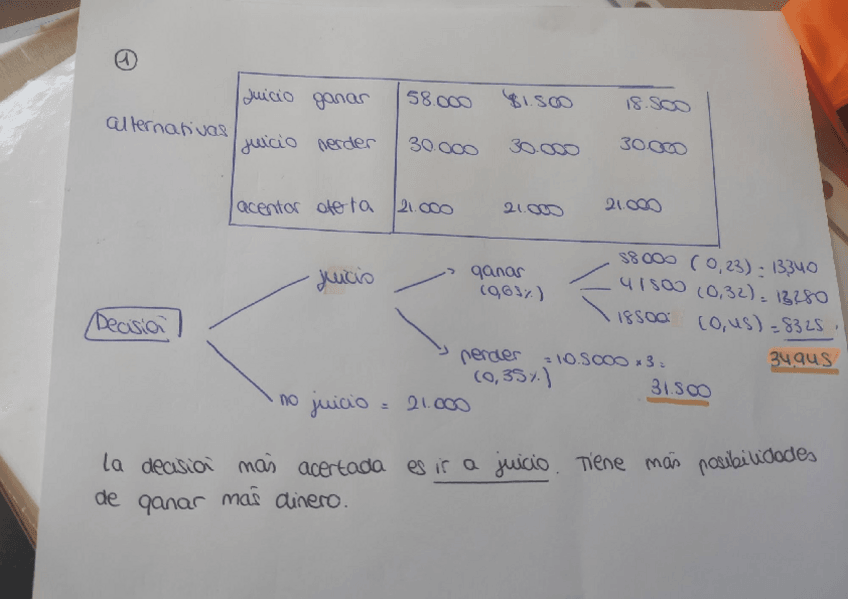 1
juicio ganar 58.000 41.500 18.500
alternativas
juicio perder 30.000 30.000 30.000
aceptar oferta 21.000 21.000 21.000
58000 (0,23) = 13,340
juicio ganar 41500 (0,32) = 13,280
(0,65%)
18500 (0,45) = 8325
Decisión
34.945
perder = 10.5000 x 3 =
(0,35%)
31.500
no juicio = 21.000
la decisión más acertada es ir a juicio. Tiene más posibilidades
de ganar más dinero.